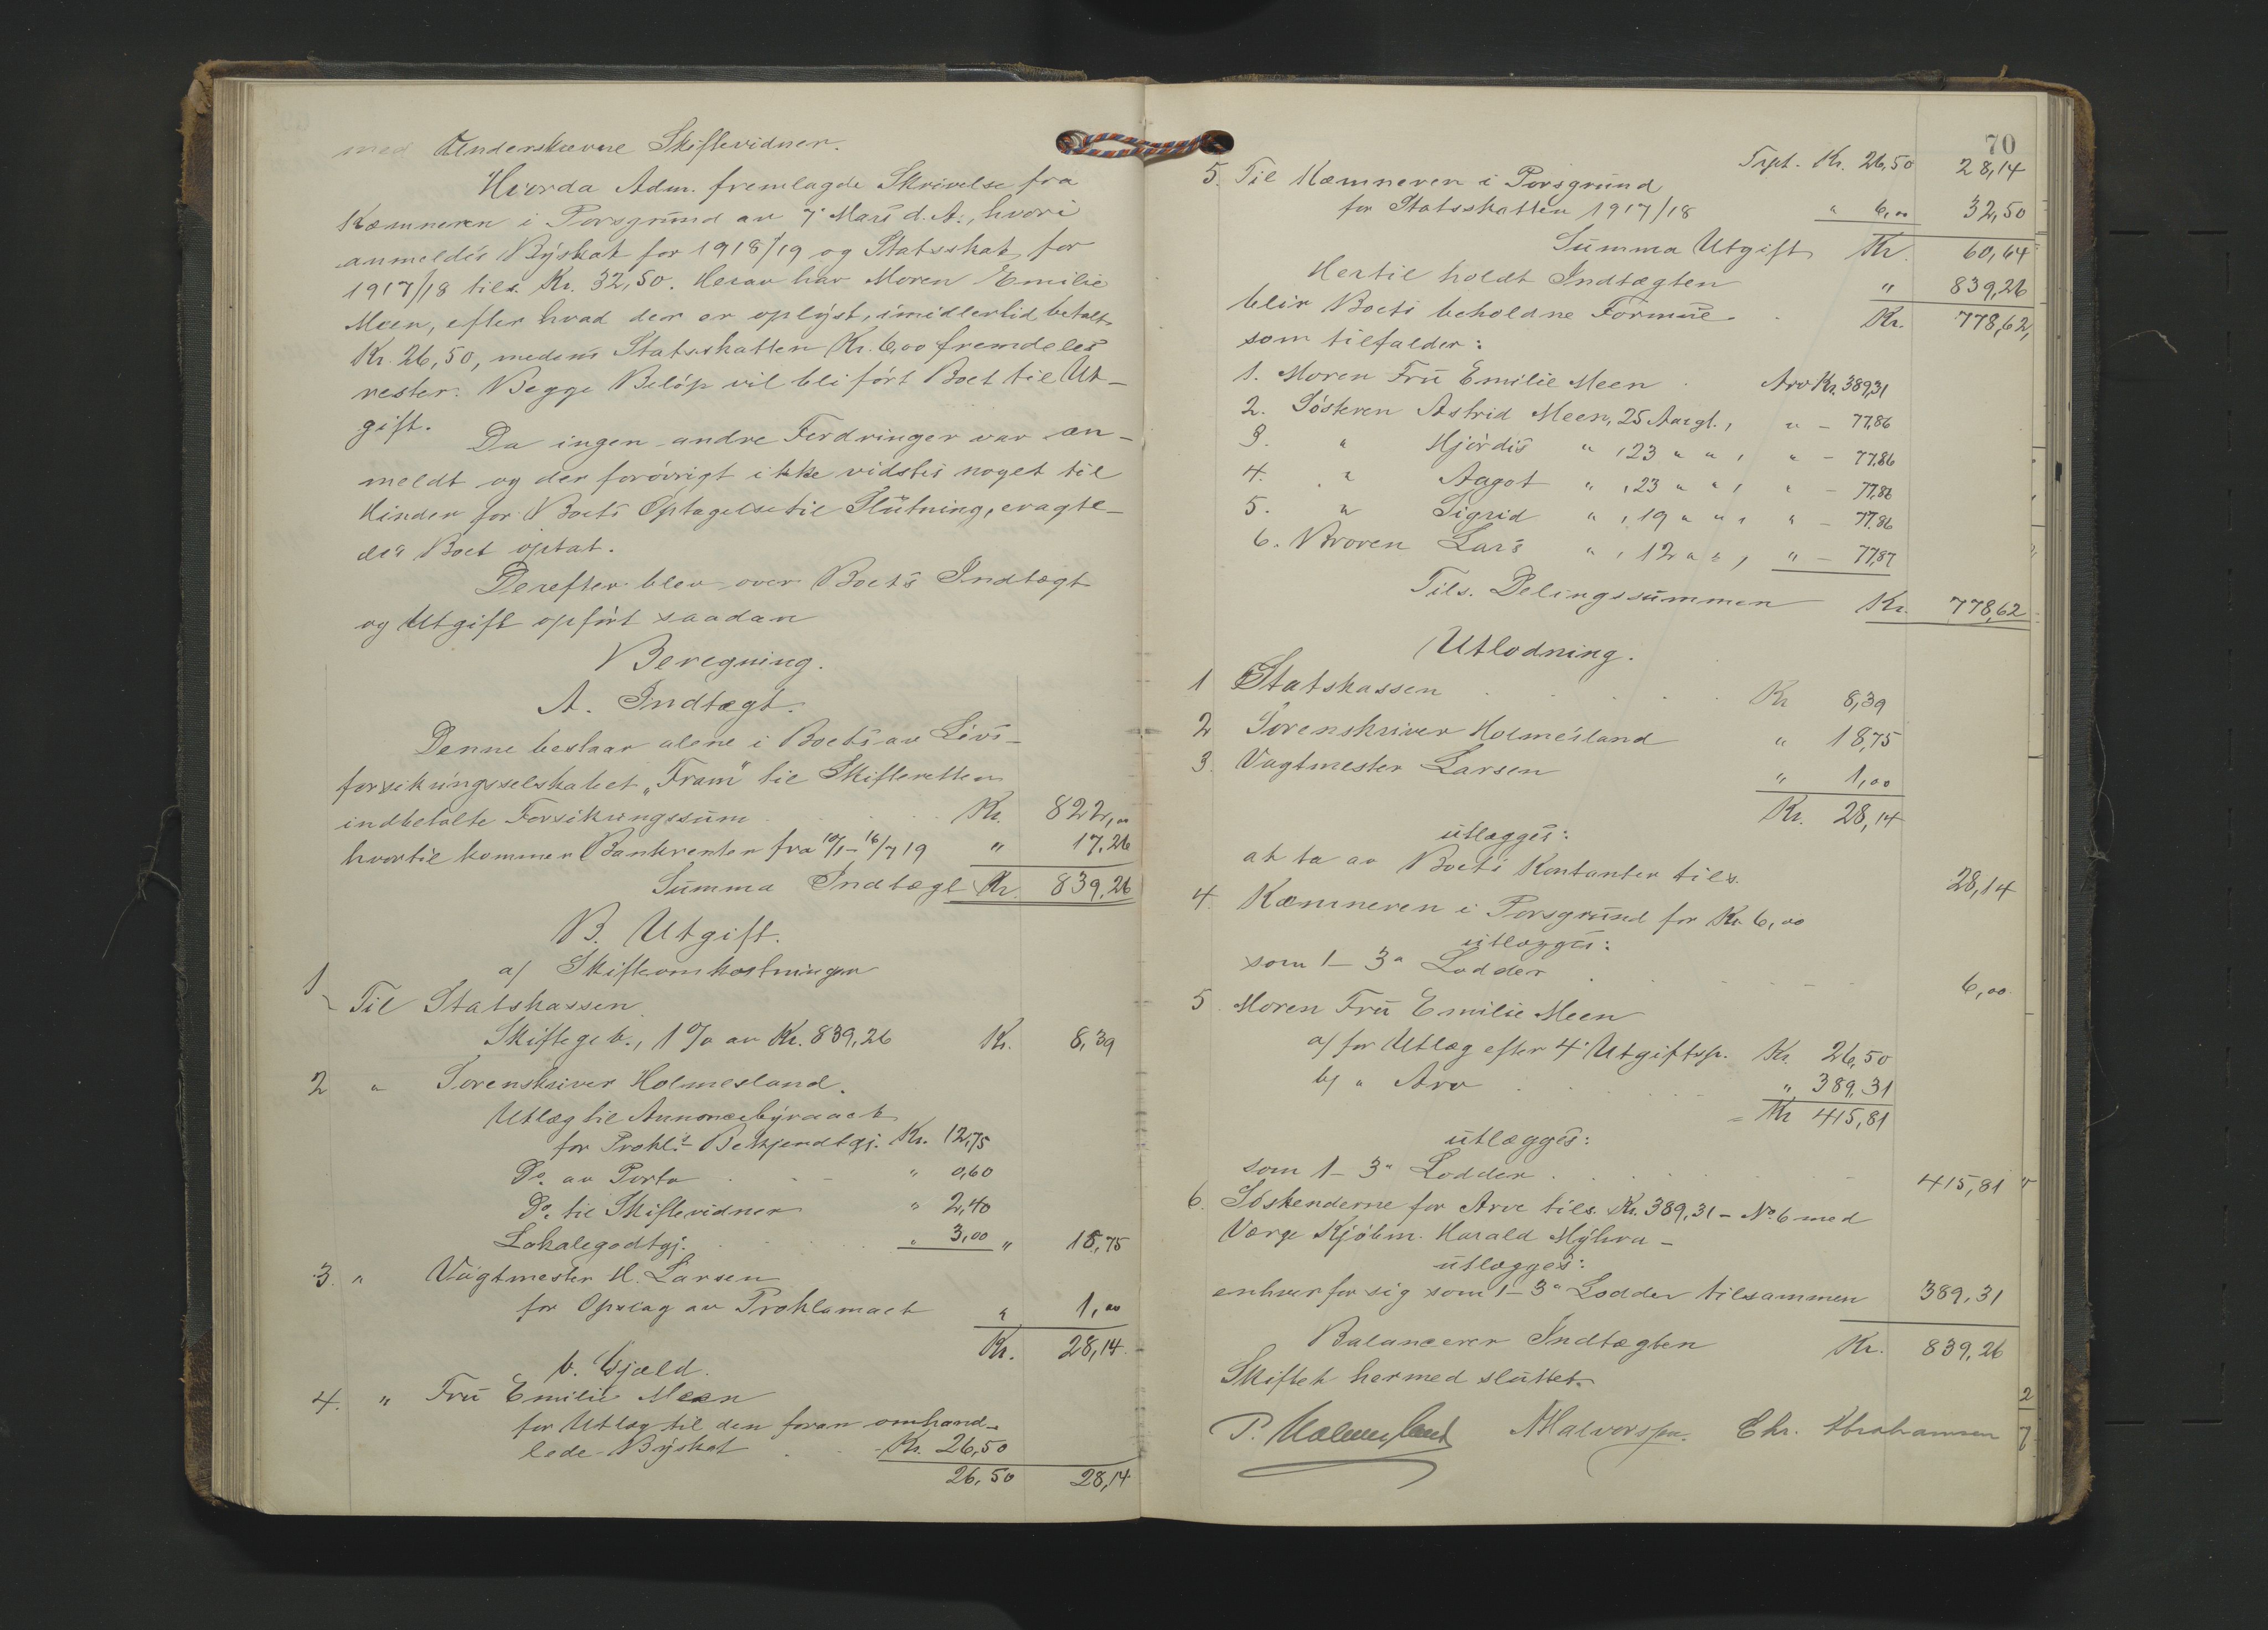 med Underskrevne Skiftevidner.
Hvorda Adm. fremlagde Skrivelse fra
Kæmneren i Porsgrund av 7' Mars d. A., hvori
anmeldes Byskat for 1918/19 og Statsskat for
1917/18 tils. Kr. 32,50. Herav har Moren Emilie
Meen, efter hvad der er oplyst, imidlertid betalt
Kr. 26,50, medens Statsskatten Kr. 6,00 fremdeles
rester. Begge Beløp vil bli ført Boet til Ut-
gift.
Da ingen andre Fordringer var an-
meldt og der forøvrigt ikke vidstes noget til
Hinder for Boets Optagelse til Slutning, eragte-
des Boet optat.
Derefter blev over Boets Indtægt
og Utgift opført saadan
Beregning.
A. Indtægt.
Denne bestaar alene i Boets av Livs-
forsikringsselskabet „Fram" til Skifteretten
indbetalte Forsikringssum Kr. 822,00
hvortil kommer Bankrenter fra 10/1 - 16/7 19 " 17,26
Summa Indtægt Kr. 839,26
B. Utgift.
a/ Skifteomkostninger
1 Til Statskassen
Skiftegeb., 1% av Kr. 839,26 Kr. 8,39
2 " Sorenskriver Holmesland.
Utlæg til Annoncebyraaet
for Prokl.s Bekjendtgj. Kr. 12,75
Do. av Porto " 0,60
Do. til Skiftevidner " 2,40
Lokalegodtgj. " 3,00 " 18,75
3. " Vagtmester H. Larsen
for Opslag av Proklamaet " 1,00
Kr. 28,14
b. Gjæld.
4. " Fru Emilie Meen
for Utlæg til den foran omhand-
lede Byskat Kr. 26,50
26,50 28,14
70
Trpt. Kr. 26,50 28,14
5. Til Kæmneren i Porsgrund
for Statsskatten 1917/18 " 6,00 32,50
Summa Utgift Kr. 60,64
Hertil holdt Indtægten " 839,26
blir Boets beholdne Formue Kr. 778,62,
som tilfalder:
1. Moren Fru Emilie Meen Arv Kr. 389,31
2. Søsteren Astrid Meen, 25 Aar gl., " - 77,86
3. " Hjørdis " , 23 " " , " - 77,86
4. " Aagot " , 23 " " , " - 77,86
5. " Sigrid " , 19 " " , " - 77,86
6. Broren Lars " , 12 " " , " - 77,87
Tils. Delingssummen Kr. 778,62
Utlodning.
1 Statskassen Kr 8,39
2 Sorenskriver Holmesland " 18,75
3. Vagtmester Larsen " 1,00
Kr. 28,14
utlægges:
at ta av Boets Kontanter tils. 28,14
4. Kæmneren i Porsgrund for Kr. 6,00
utlægges:
som 1 - 3" Lodder 6,00
5. Moren Fru Emilie Meen
a/ for Utlæg efter 4' Utgiftsp. Kr. 26,50
b/ " Arv " 389,31
= Kr 415,81
utlægges:
som 1 - 3" Lodder 415,81
6. Søskenderne for Arve tils. Kr. 389,31 - No. 6 med
Værge Kjøbm. Harald Myhra -
utlægges:
enhver for sig som 1 - 3" Lodder tilsammen 389,31
Balancerer Indtægten Kr. 839,26
Skiftet hermed sluttet.
P. Holmesland AHalvorsen. Chr. Abrahamsen